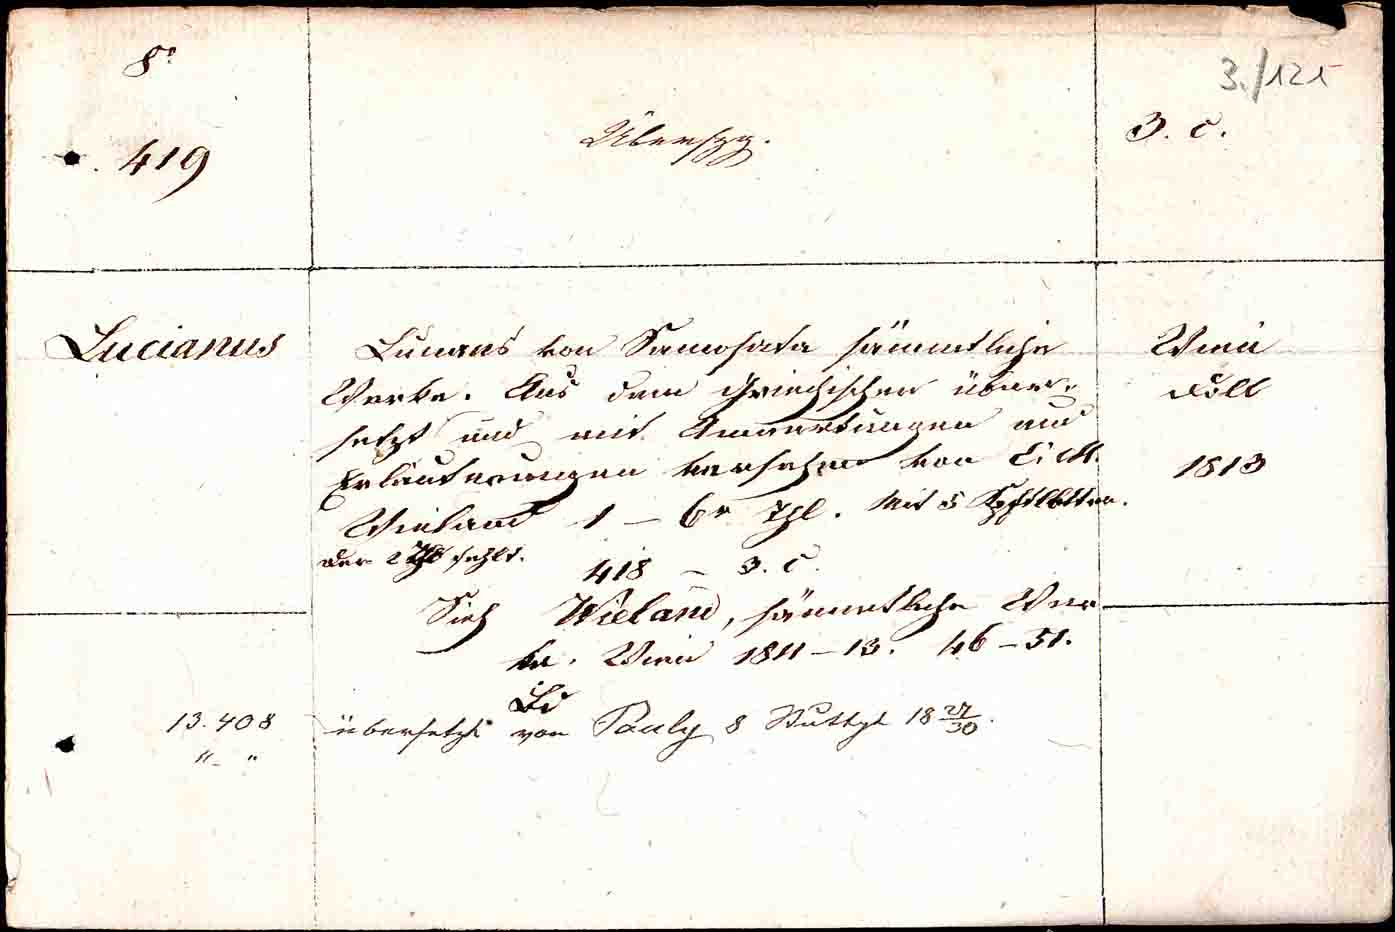 8°
419
Überszg.
3./121
3. c.
Lucianus
Lucians von Samosata sämmtliche
Werke. Aus dem Griechischen über-
setzt und mit Anmerkungen und
Erläuterungen versehen von C. M.
Wieland 1 – 6r Thl. Mit 5 Kpftblttrn.
Der 2 Thl fehlt.
418 – 3. C.
Sieh Wieland, sämmtliche Wer
ke. Wien 1811–13. 46–51.
Bd
Wien
Doll
1813
13.408
" – "
übersetzt von Pauly 8 Stuttgt 18 27/30.